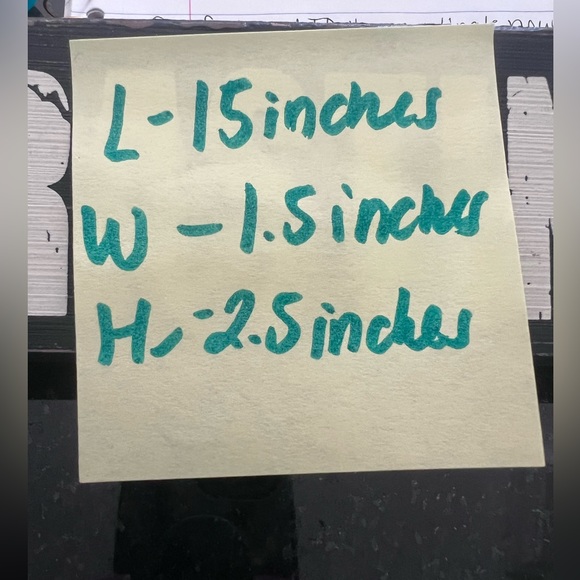 L-15 inches
W - 1.5 inches
H, -2.5 inches